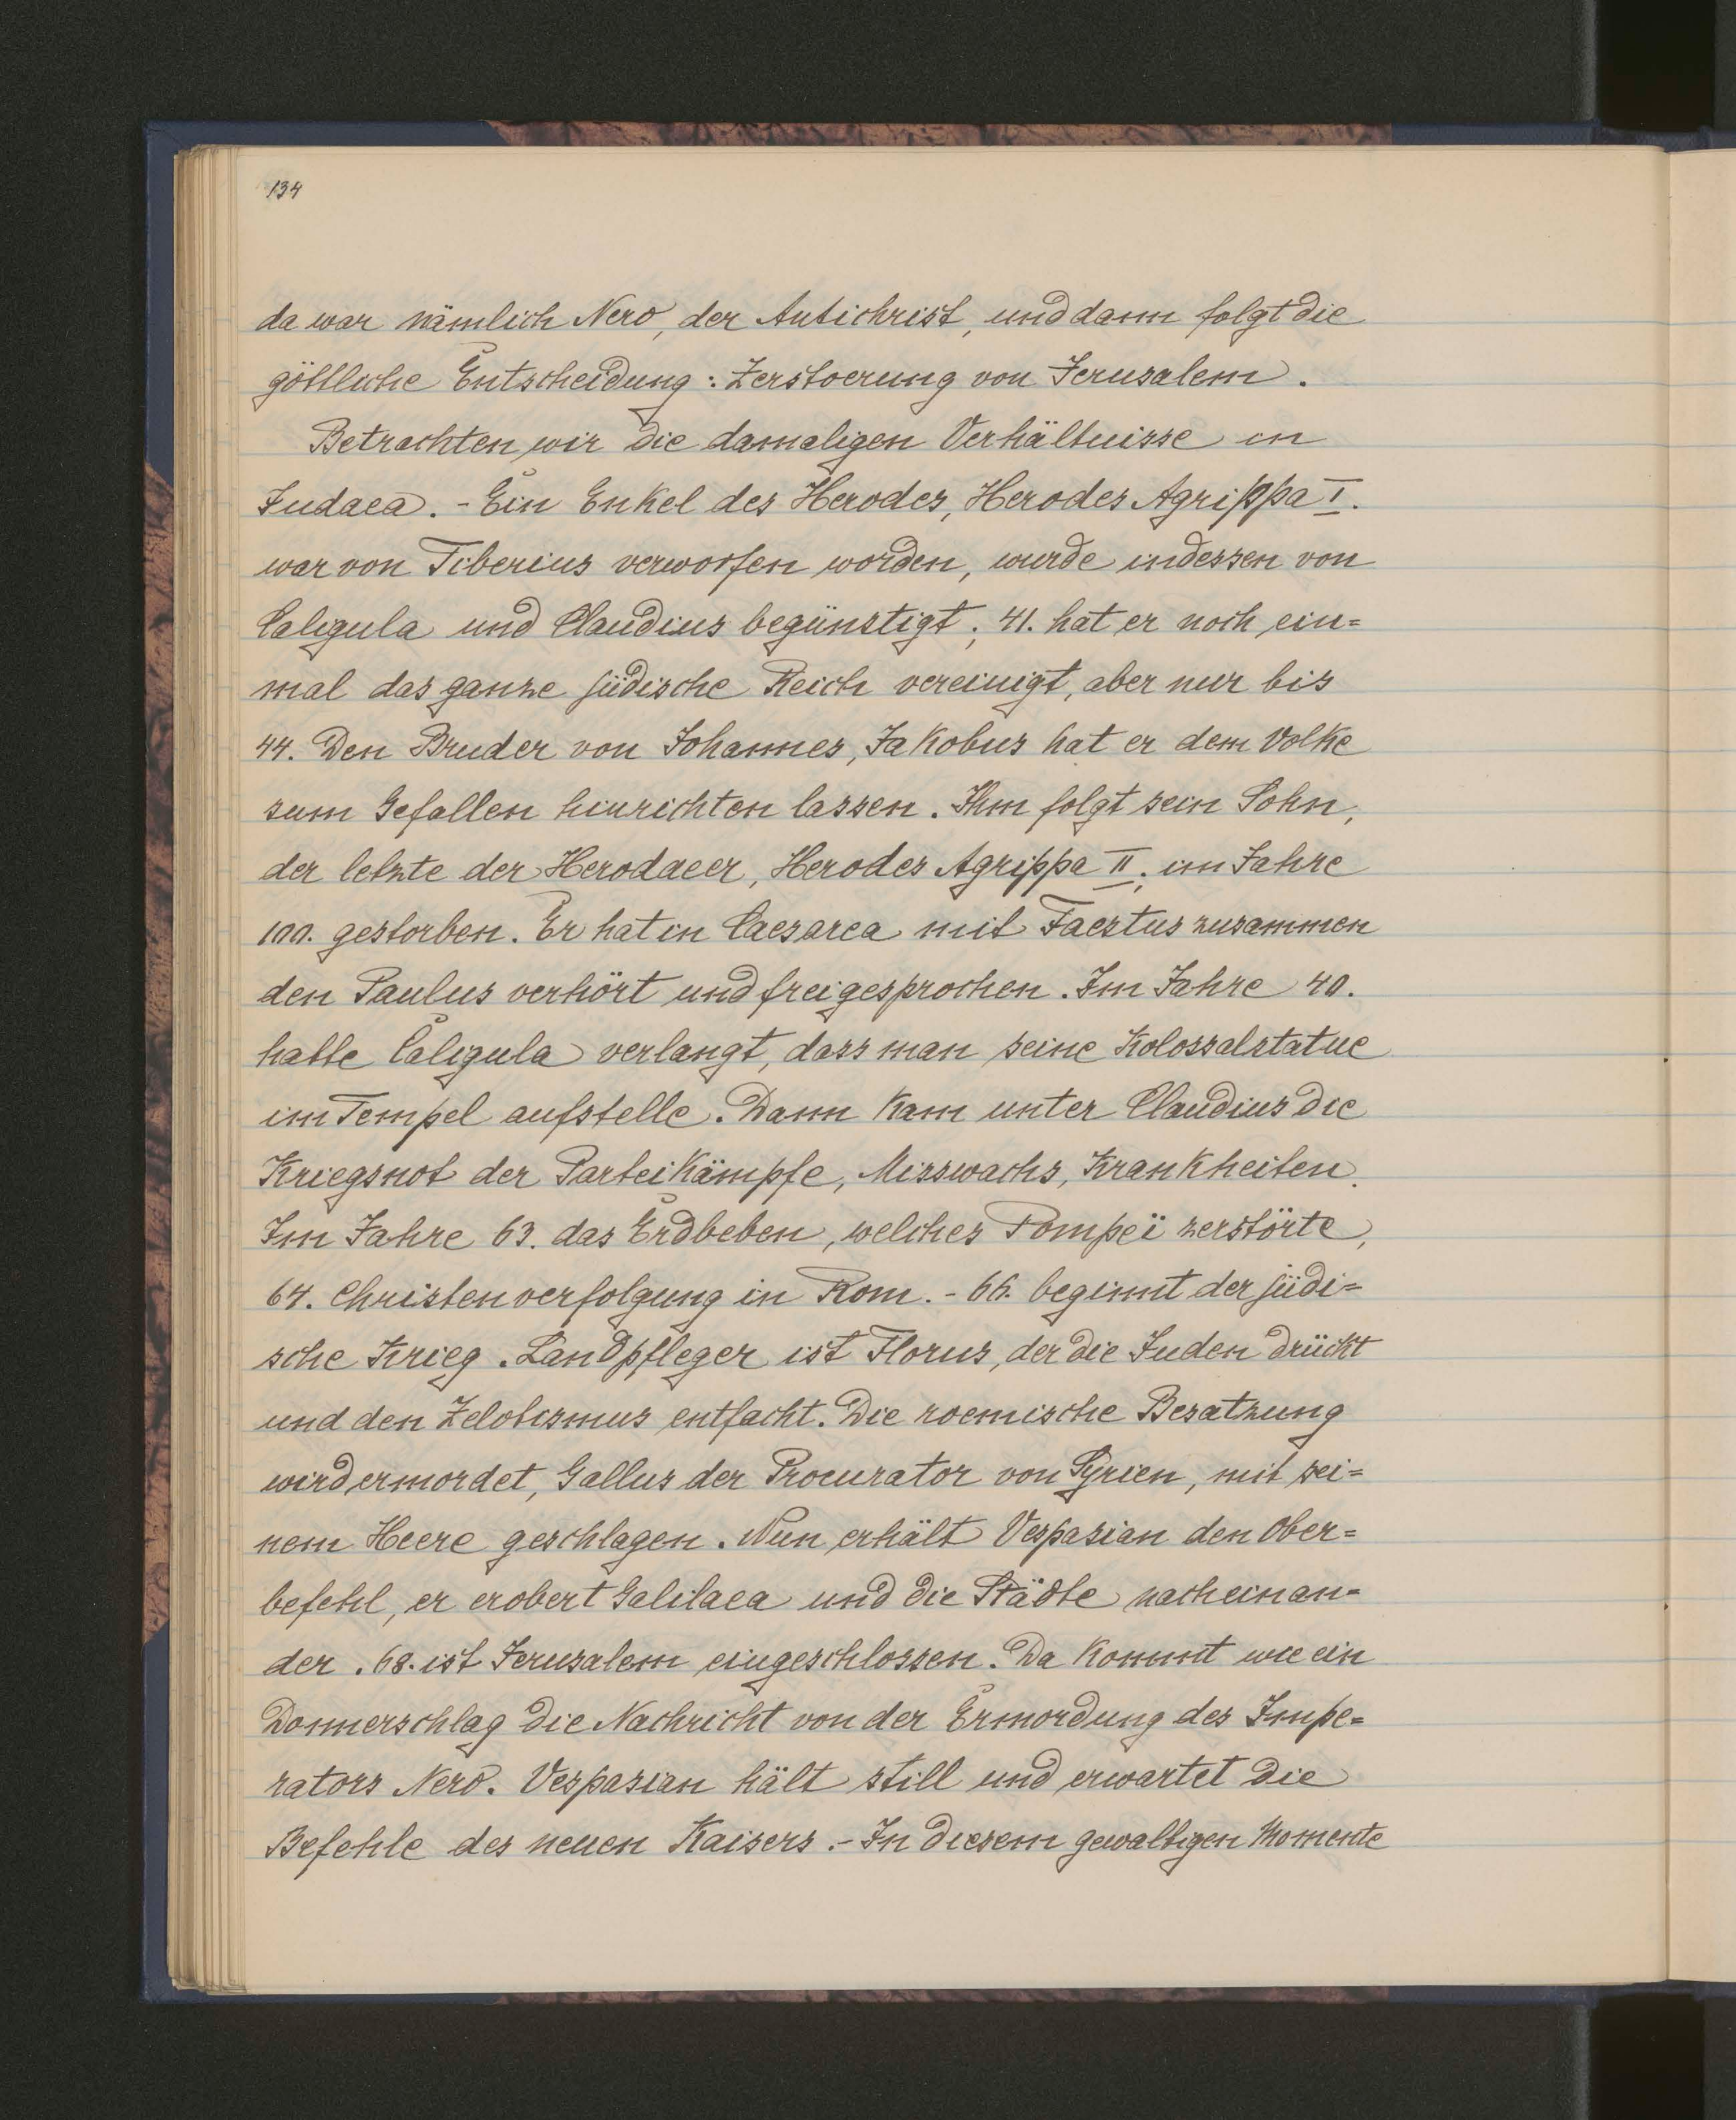 134
da war nämlich Nero, der Antichrist, und dann folgt die
göttliche Entscheidung: Zerstoerung von Jerusalem.
Betrachten wir die damaligen Verhältnisse in
Judaea. - Ein Enkel des Herodes, Herodes Agrippa I.
war von Tiberius verworfen worden, wurde indessen von
Caligula und Claudius begünstigt; 41. hat er noch ein=
mal das ganze jüdische Reich vereinigt, aber nur bis
44. Den Bruder von Johannes, Jakobus hat er dem Volke
zum Gefallen hinrichten lassen. Ihm folgt sein Sohn,
der letzte der Herodaeer, Herodes Agrippa II; im Jahre
100. gestorben. Er hat in Caesarea mit Faestus zusammen
den Paulus verhört und freigesprochen. Im Jahre 40.
hatte Caligula verlangt, dass man seine Kolossalstatue
im Tempel aufstelle. Dann kam unter Claudius die
Kriegsnot der Parteikämpfe, Misswachs, Krankheiten.
Im Jahre 63. das Erdbeben, welches Pompeï zerstörte,
64. Christenverfolgung in Rom. - 66. beginnt der jüdi=
sche Krieg. Landpfleger ist Florus, der die Juden drückt
und den Zelotismus entfacht. Die roemische Besatzung
wird ermordet, Gallus der Procurator von Syrien, mit sei=
nem Heere geschlagen. Nun erhält Vespasian den Ober=
befehl, er erobert Galilaea und die Städte nacheinan=
der. 68. ist Jerusalem eingeschlossen. Da kommt wie ein
Donnerschlag die Nachricht von der Ermordung des Impe=
rators Nero. Vespasian hält still und erwartet die
Befehle des neuen Kaisers. - In diesem gewaltigen Momente